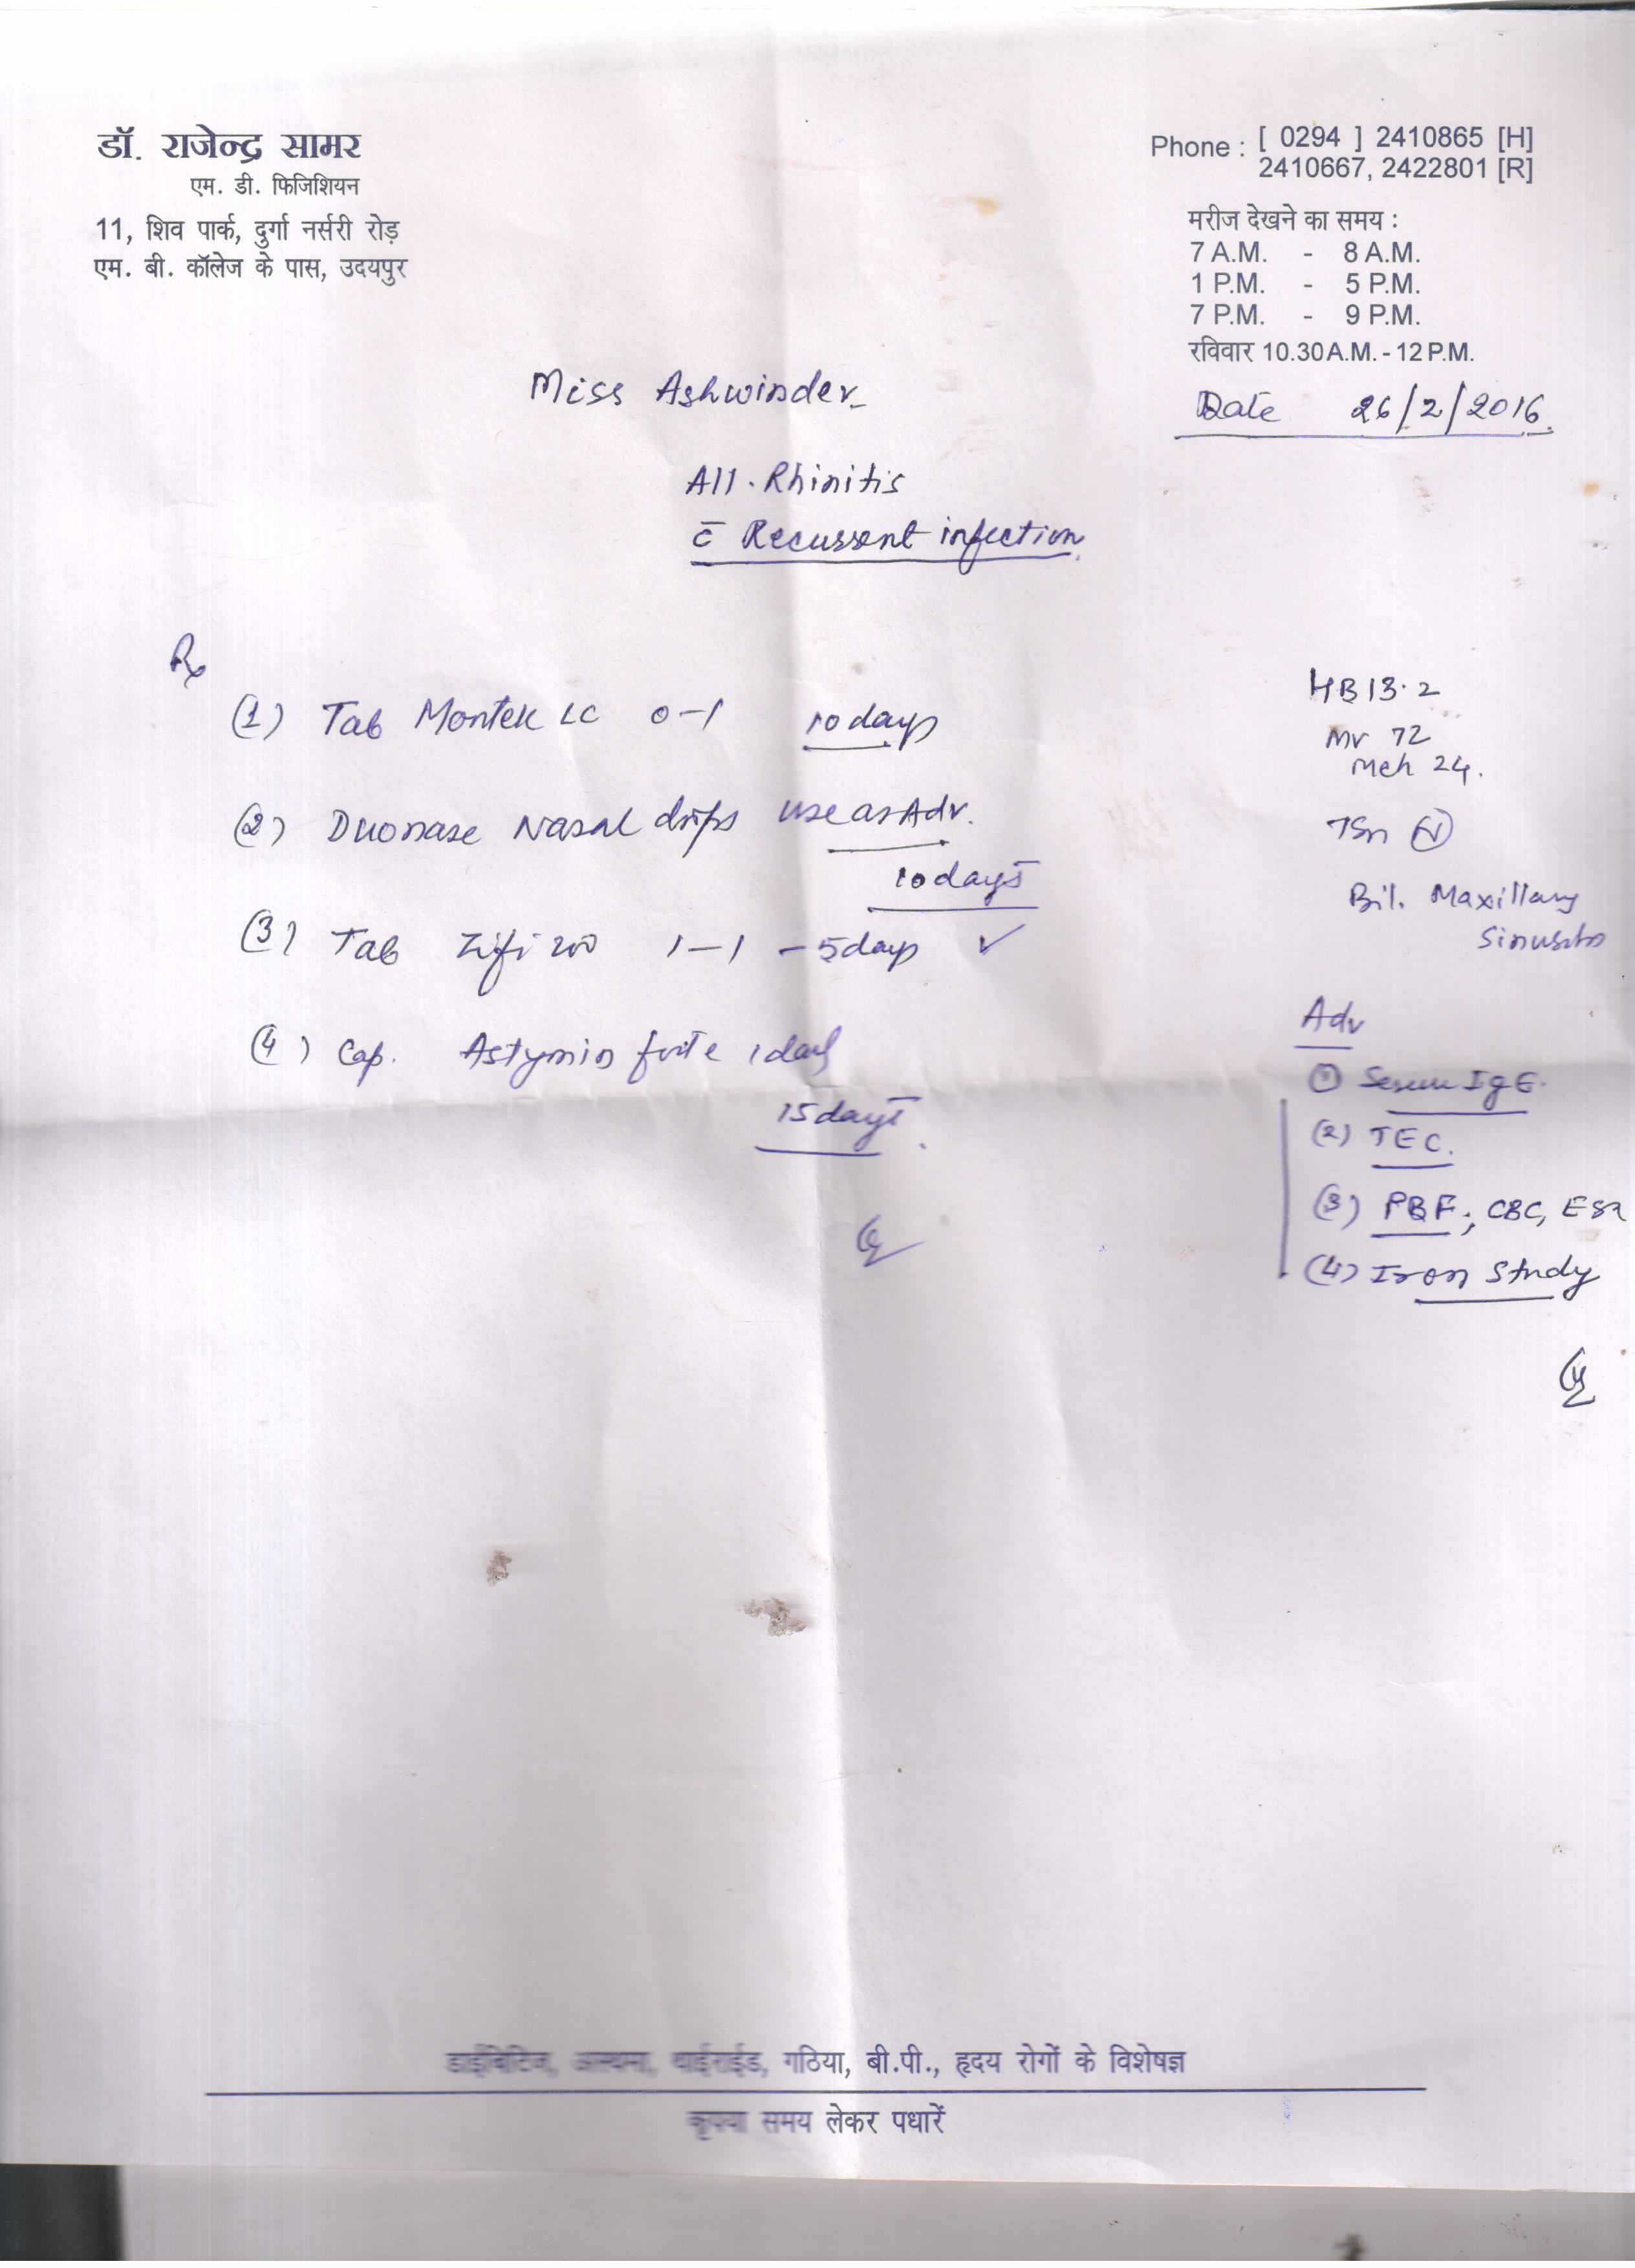 डॉ. राजेन्द्र सामर
एम. डी. फिजिशियन
11, शिव पार्क, दुर्गा नर्सरी रोड़
एम. बी. कॉलेज के पास, उदयपुर
Phone : [ 0294 ] 2410865 [H]
2410667, 2422801 [R]
मरीज देखने का समय :
7 A.M. - 8 A.M.
1 P.M. - 5 P.M.
7 P.M. - 9 P.M.
रविवार 10.30 A.M. - 12 P.M.
Date 26/2/2016.
Miss Ashwinder
All. Rhinitis
c̄ Recurrent infection
Rx
(1) Tab Montek LC 0-1 10 days
(2) Duonase Nasal drops use as Adv.
10 days
(3) Tab Zifi 200 1-1 - 5 days ✓
(4) Cap. Astymin forte 1 daily
15 days
HB 13.2
MV 72
Mch 24.
TSH (N)
Bil. Maxillary
Sinusitis
Adv
(1) Serum IgE.
(2) TEC.
(3) PBF, CBC, ESR
(4) Iron Study
डाईबिटिज, अस्थमा, थाईराईड, गठिया, बी.पी., हृदय रोगों के विशेषज्ञ
कृपया समय लेकर पधारें